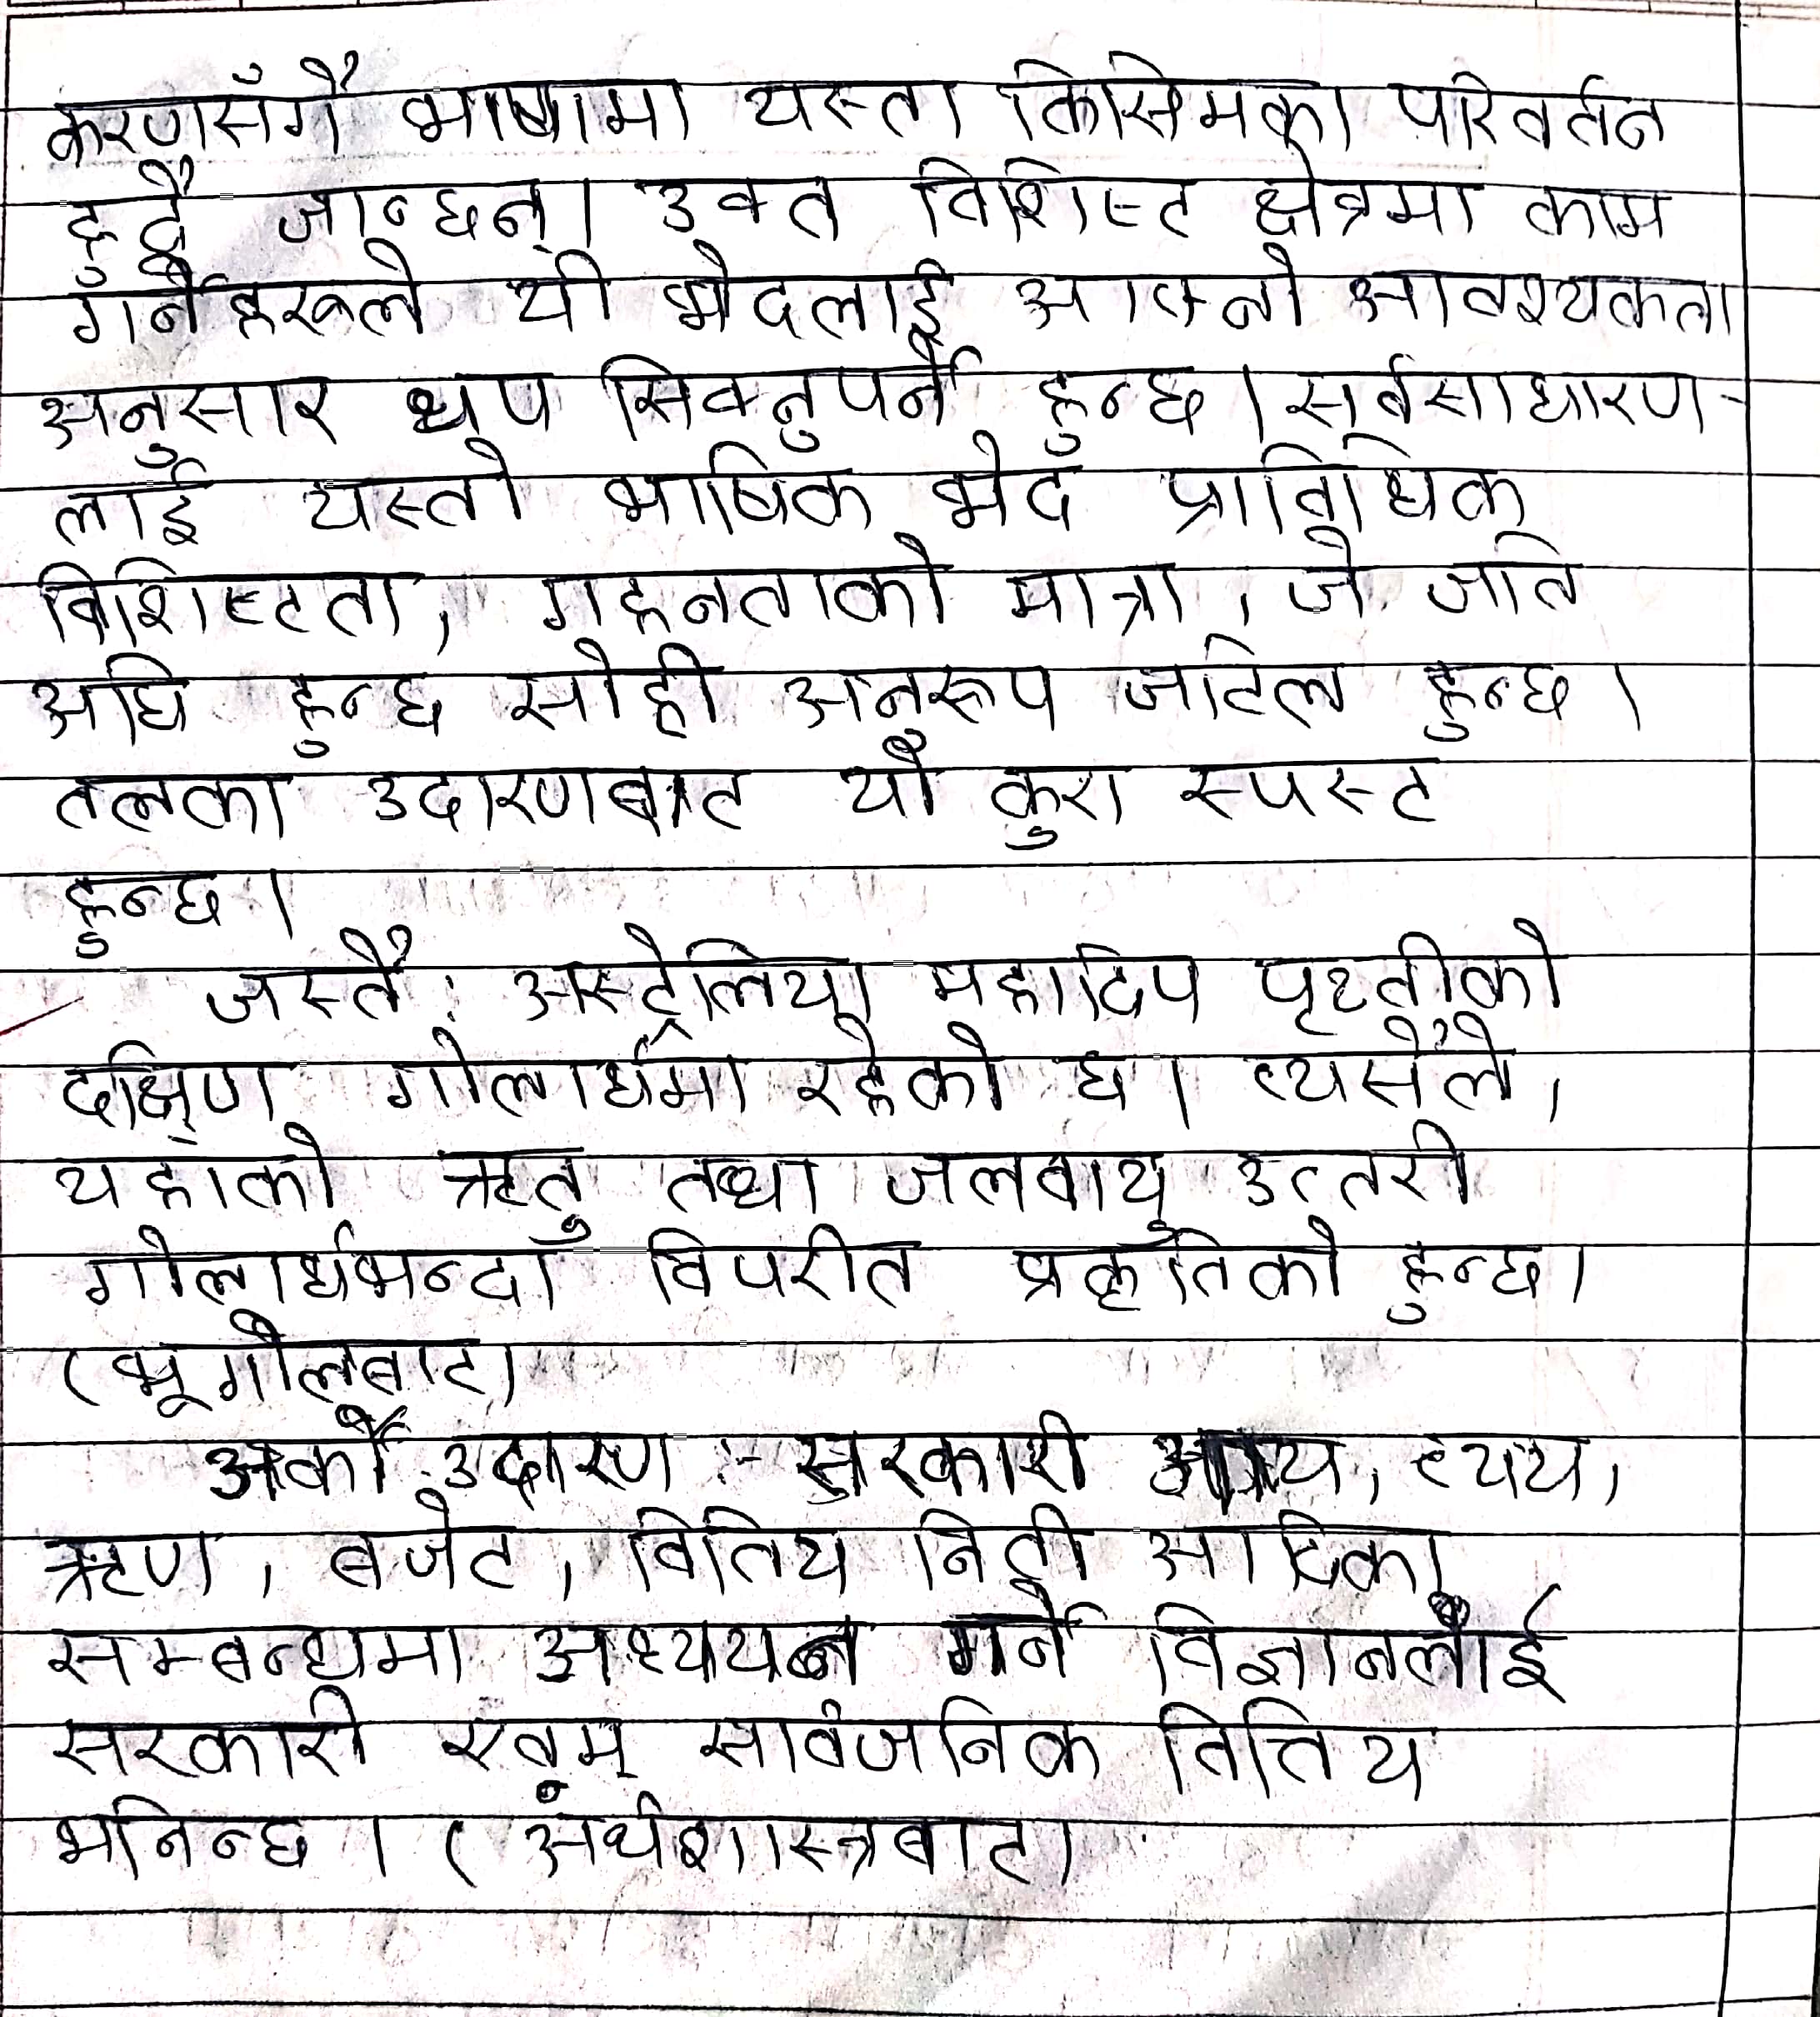 करणसँगै भाषामा यस्ता किसिमका परिवर्तन
हुदै जान्छन्। उक्त विशिष्ट क्षेत्रमा काम
गर्नेहरूले यी भेदलाई आफ्नो आवश्यकता
अनुसार थप सिक्नुपर्ने हुन्छ। सर्वसाधारण-
लाई यस्तो भाषिक भेद प्राविधिक
विशिष्टता, गहनताको मात्रा, जे जति
अघि हुन्छ सोही अनुरूप जटिल हुन्छ।
तलका उदारणबाट यो कुरा स्पस्ट
हुन्छ।
जस्तै: अस्ट्रेलिया महादिप पृथ्वीको
दक्षिण गोलार्धमा रहेको छ। त्यसैले,
यहाको ऋतु तथा जलवायु उत्तरी
गोलार्धभन्दा विपरीत प्रकृतिको हुन्छ।
(भूगोलबाट)
अर्को उदारण :- सरकारी आय, व्यय,
ऋण, बजेट, वितिय निती आदिका
सम्बन्धमा अध्ययन गर्ने विज्ञानलाई
सरकारी एवम् सार्वजनिक तित्तिय
भनिन्छ। (अर्थशास्त्रबाट)